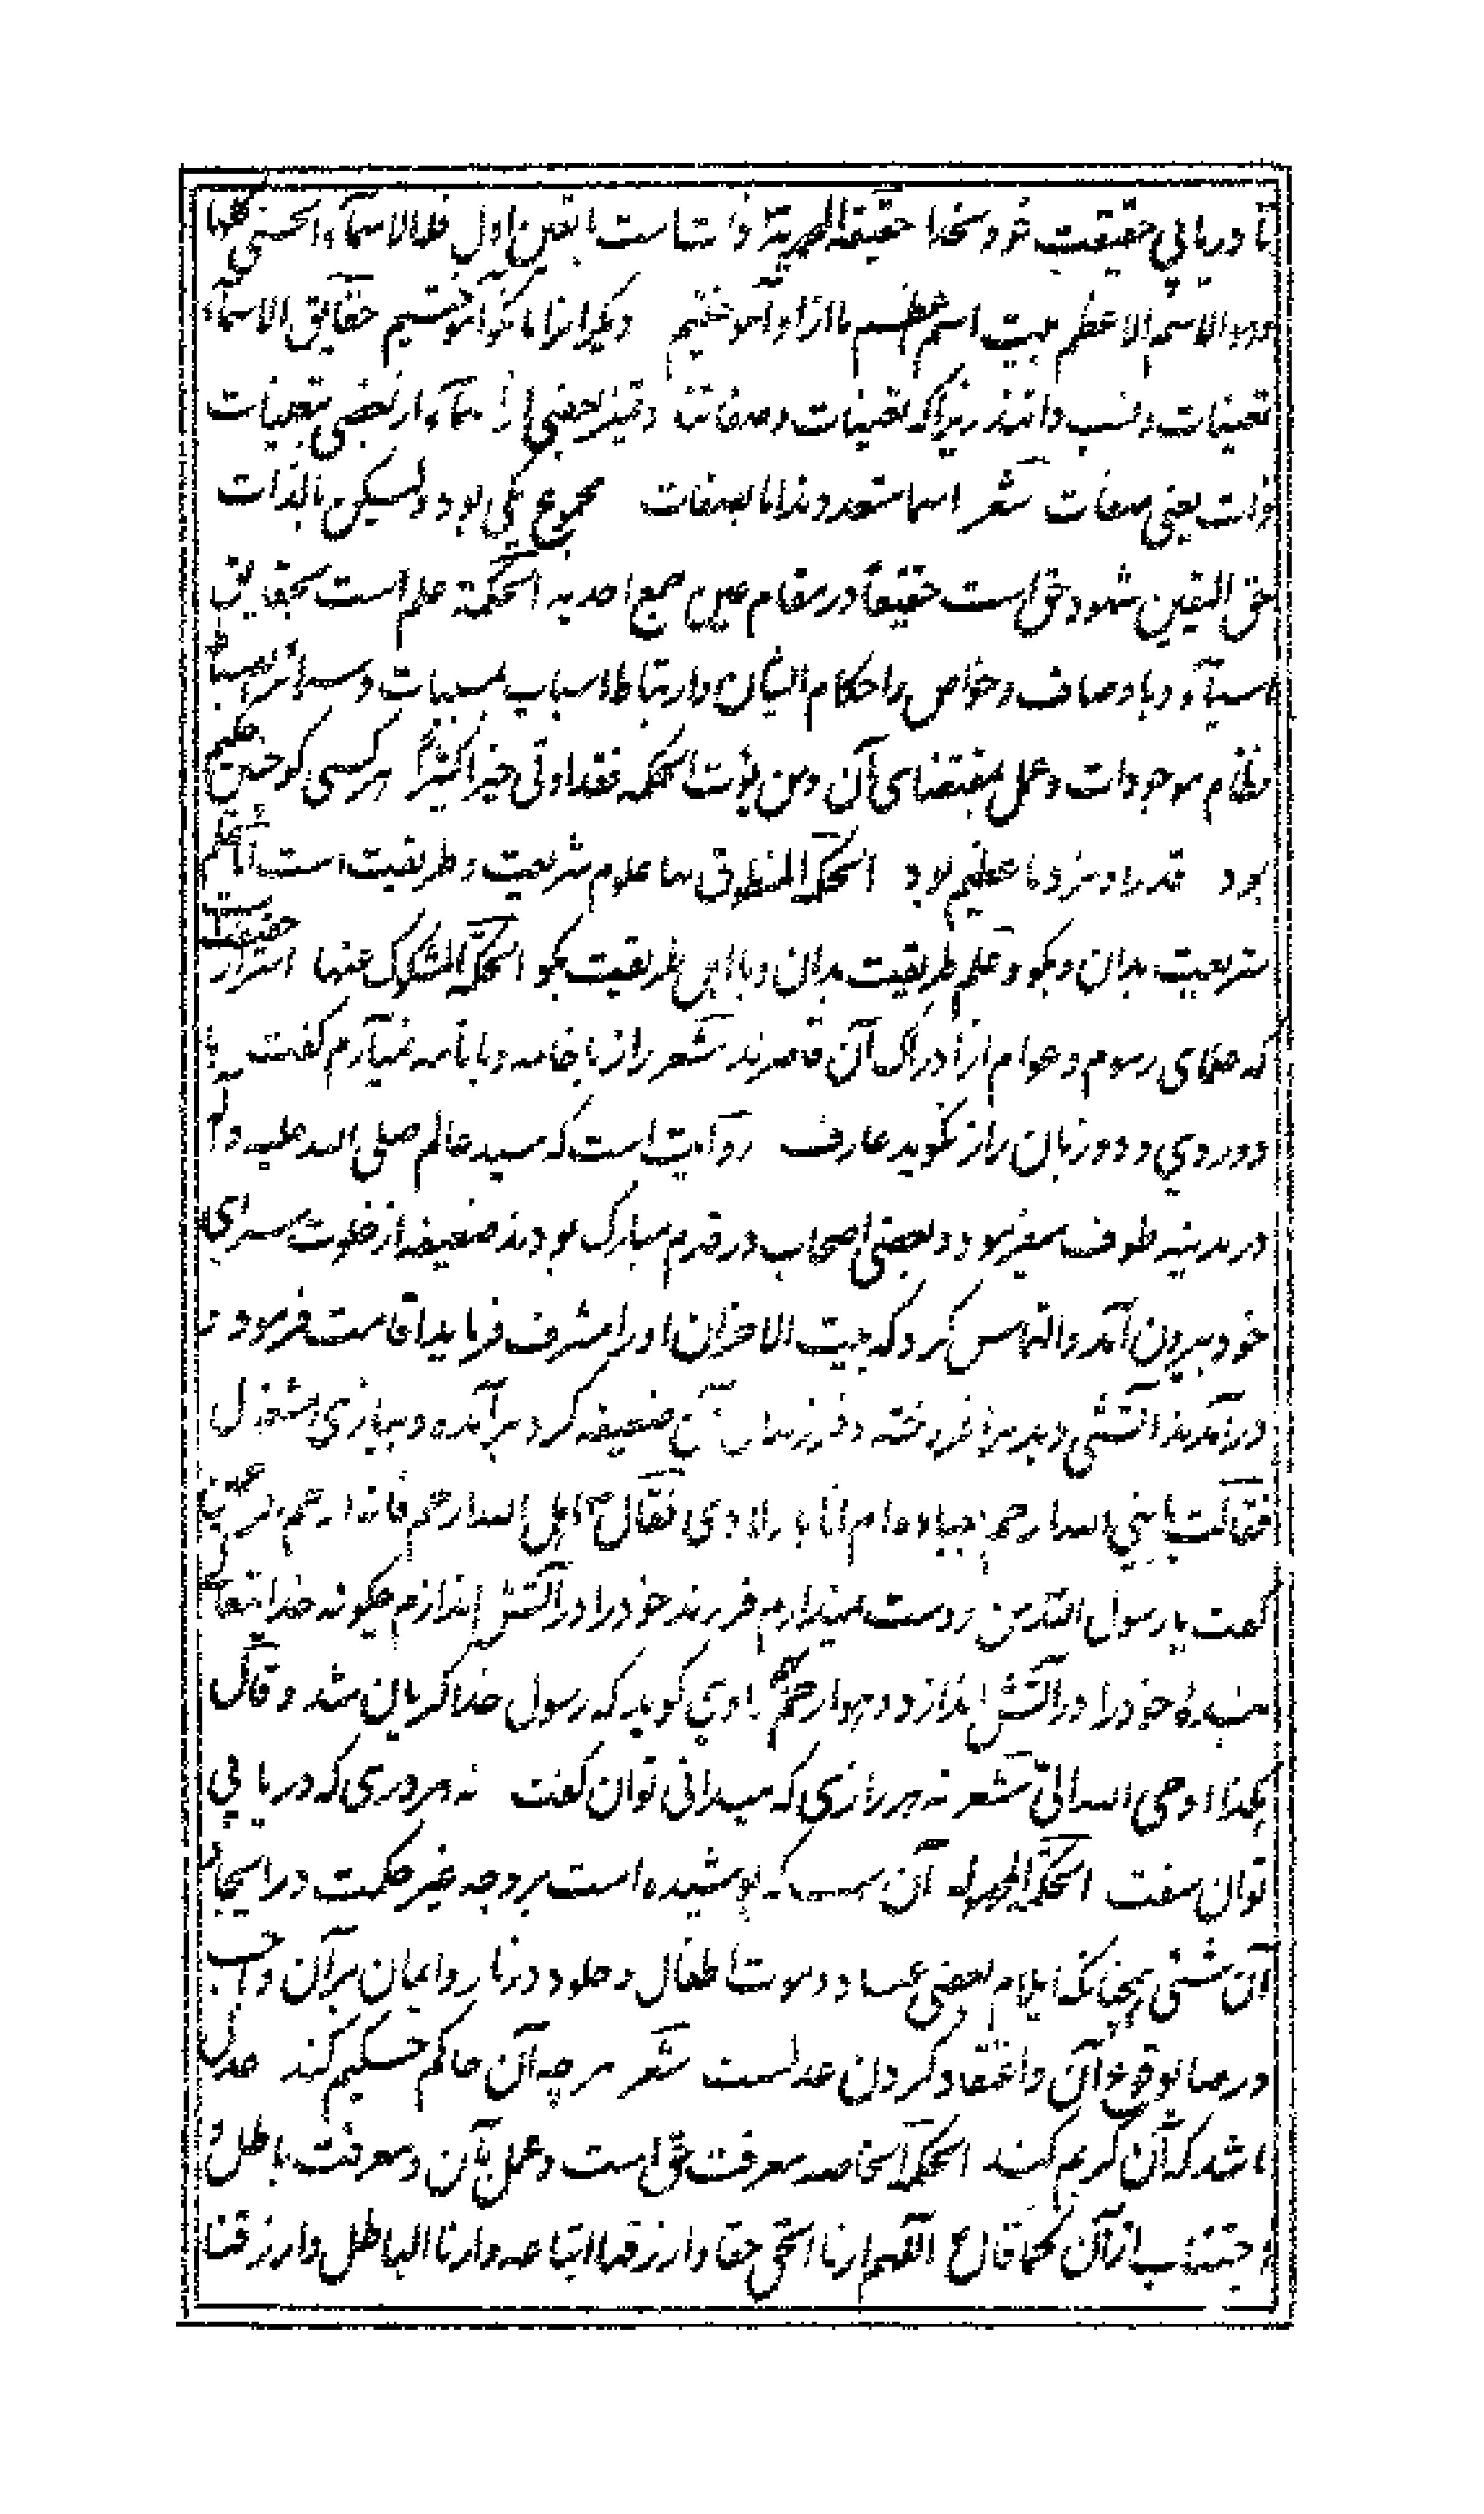 تا دریابی حقیقت خود بخدا حقیقة المحمدیة ذاتست با تعین اول فله الاسمآء الحسنی کلها
وهو الاسم الاعظم بیت اسم اعظم ما ازو آموختیم دیگرانرا ما نکو آموختیم حقایق الاسمآء
تعینات و نسب ذاتند زیرا که تعینات و صفاتند و تمیز بعضی از اسمآء از بعضی بتعینات
ذات یعنی صفات شعر اسما متعددند اما بصفات مجموع یکی بود ولیکن بالذات
حق الیقین شهود حق است حقیقة در مقام عین جمع احدیه الحکمة علم است بحقایق
اشیآء و باوصاف و خواص و احکام ایشان و ارتباط اسباب بمسببات و اسرار انضباط
نظام موجودات و عمل بمقتضای آن و من یؤت الحکمه فقد اوتی خیرا کثیرا هر کسی کو چنین حکیم
بود قدر او نزد ما عظیم بود الحکمة المنطوق بها علوم شریعت و طریقت است شعر علم
شریعت بدان و بگو و علم طریقت بدان و با اهل طریقت بگو الحکمة المسکوت عنها اسرار حقیقت است
که علمای رسوم و عوام از ادراک آن قاصرند شعر راز با خامه و با نامه نمیآرم گفت با
دوروی و دو زبان راز نگوید عارف روایت است که سید عالم صلی الله علیه و آله
در مدینه طوف میفرمود و بعضی اصحاب در قدم مبارک بودند ضعیفه از خلوت سرای
خود بیرون آمد و التماس کرد که بیت الاحزان او را مشرف فرماید اقامت فرمود و
درآمدند آتشی دیدند برافروخته و فرزندان آن ضعیفه گرد برآمده و ببازی مشغول
فقالت یا نبی الله الله ارحم بعباده ام انا باولادی فقال ع بل الله ارحم فانه ارحم الراحمین
گفت یا رسول الله من دوست نمیدارم فرزند خود را در آتش اندازم چگونه خدایتعالی
بندهٔ خود را در آتش اندازد و هو ارحم راوی گوید که رسول خدا گریان شد و قال
هکذا اوحی الله الی شعر نه هر رازی که میدانی توان گفت نه هر دری که دریابی
توان سفت الحکمة المجهولة آن است که پوشیده است بر وجه غیر حکمت در ایجاد
آن شئی همچنانکه ایلام بعضی عباد و موت اطفال و خلود در نار و ایمان بر آن واجب
و رضا بوقوع آن و اعتقاد کردن عدلست شعر هر چه آن حاکم حکیم کند عدل
باشد که آن کریم کند الحکمة الجامعه معرفت حق است و عمل بآن و معرفت باطل و
اجتناب از آن کما قال ع اللهم ارنا الحق حقا و ارزقنا اتباعه و ارنا الباطل و ارزقنا